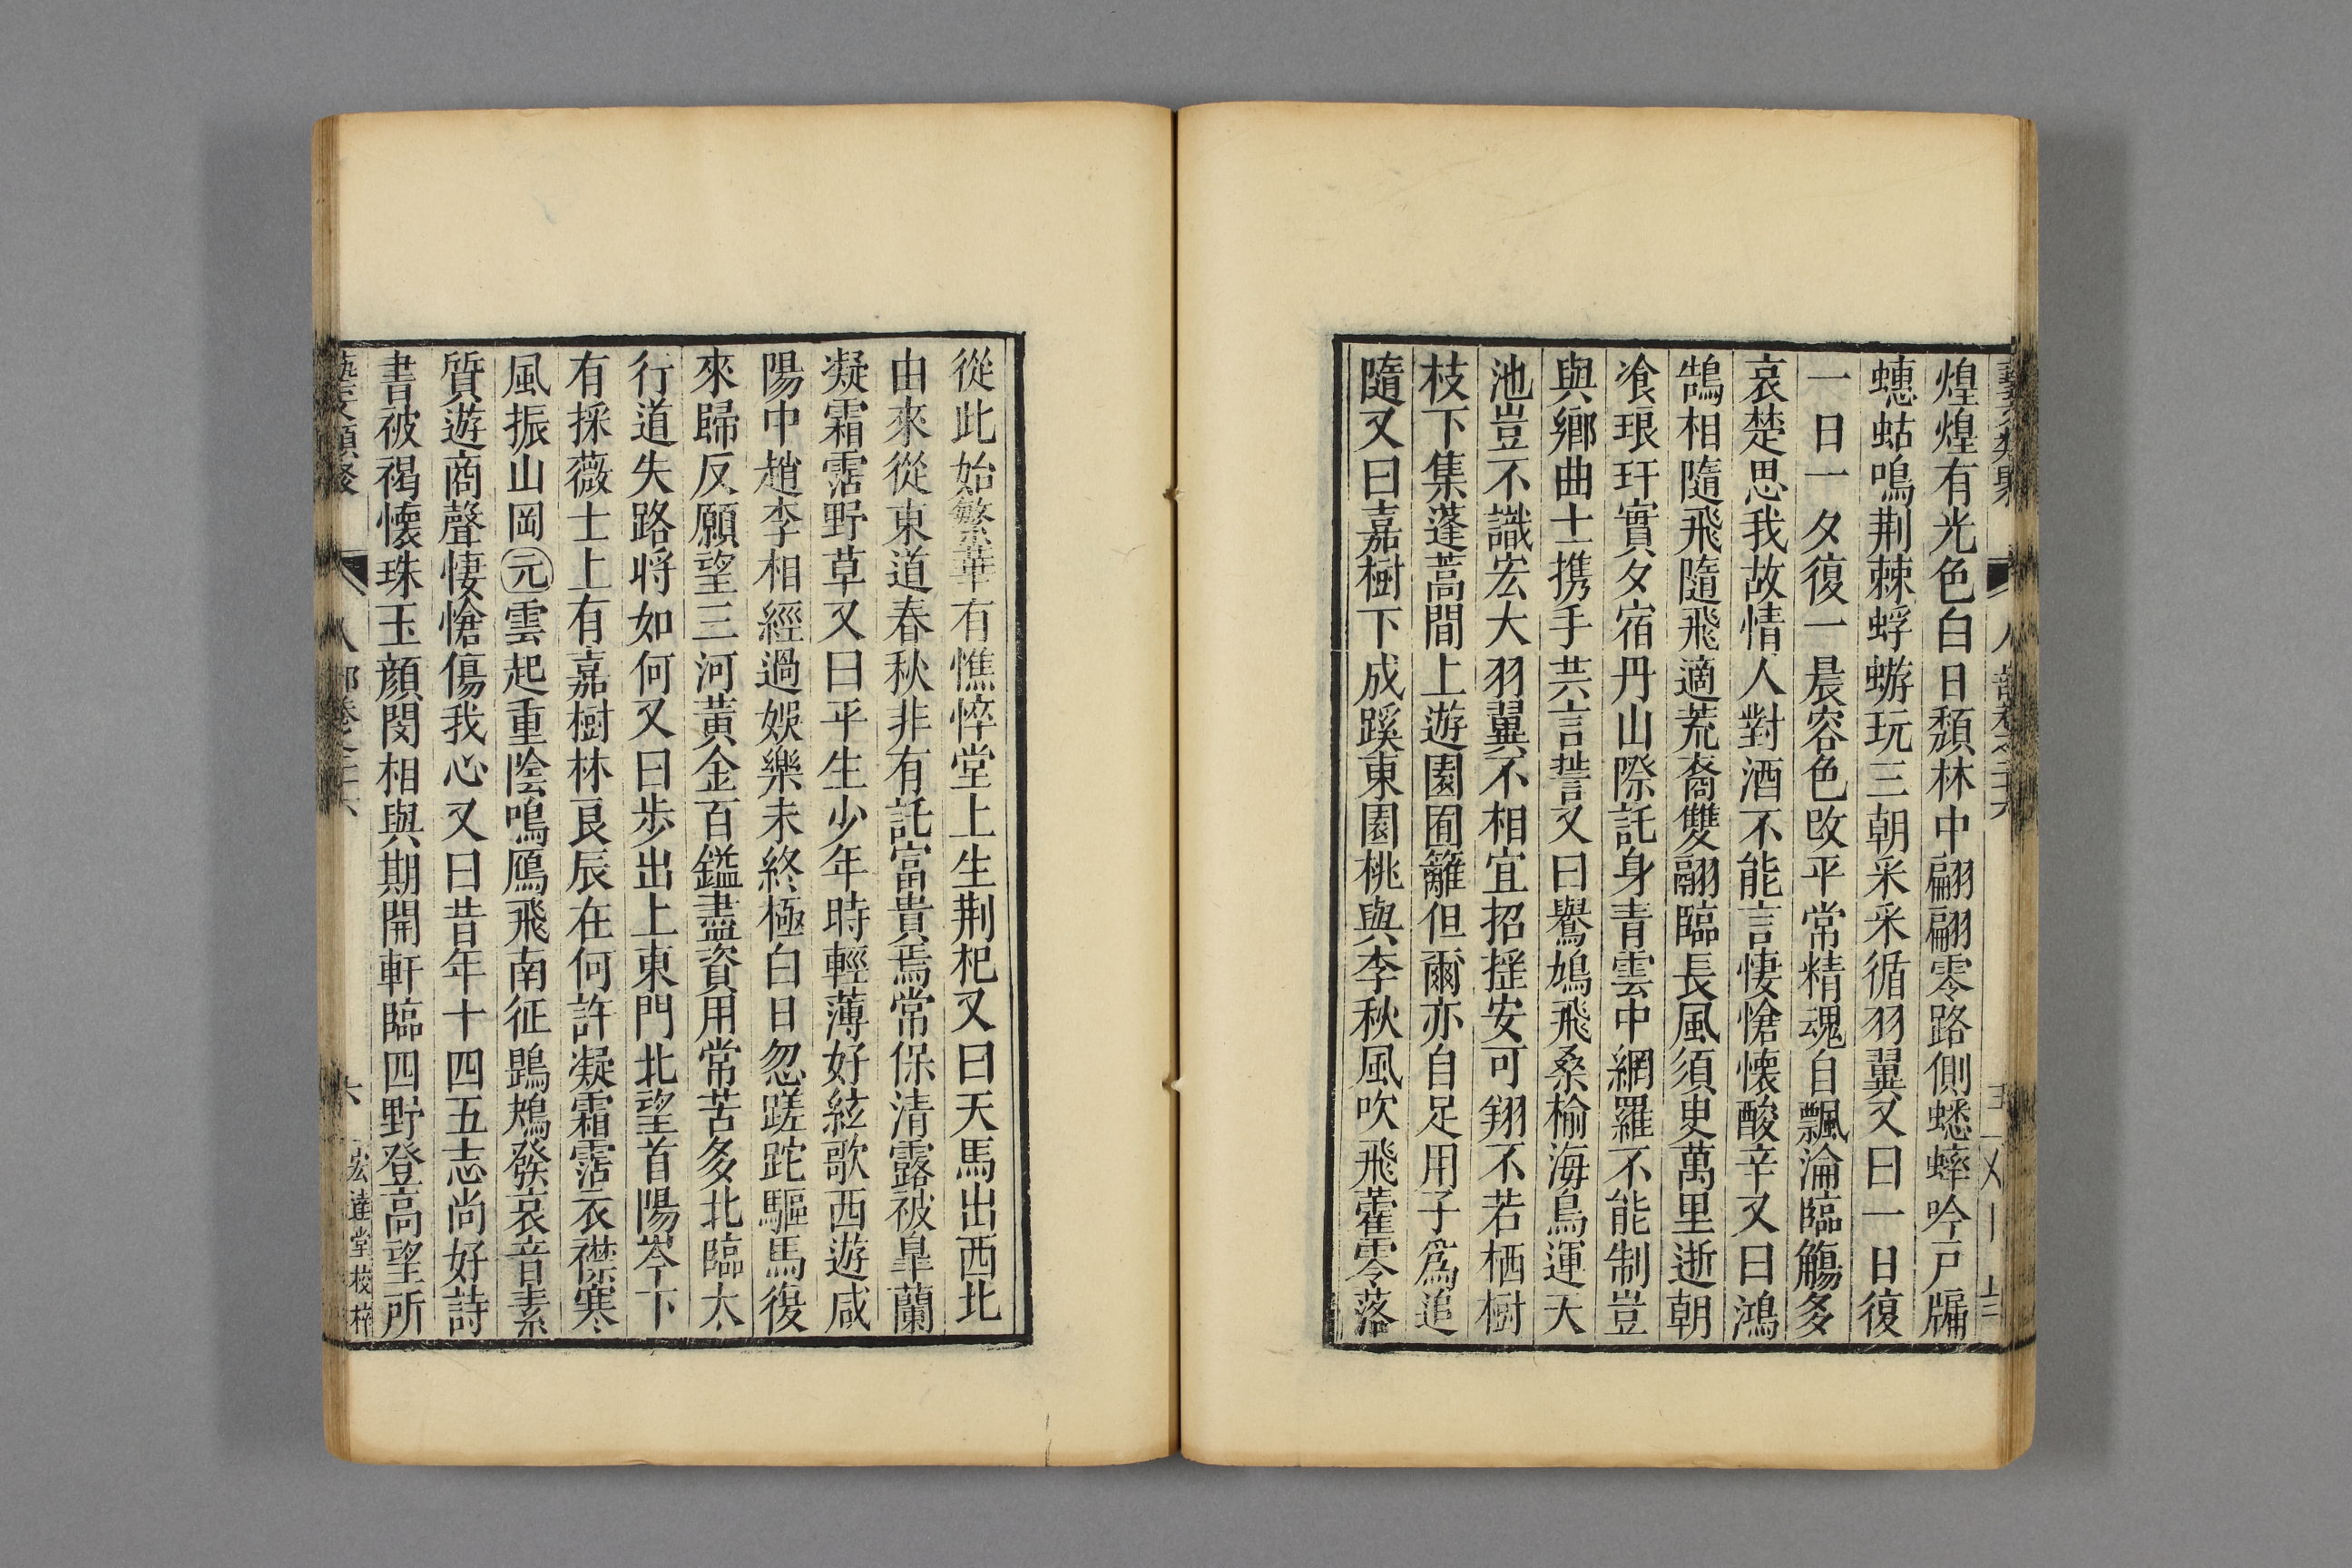 煌煌有光色白日頽林中翩翩零路側蟋蟀吟戶牖
蟪蛄鳴荆棘蜉蝣玩三朝采采循羽翼又曰一日復
一日一夕復一晨容色攺平常精魂自飄淪臨觴多
哀楚思我故情人對酒不能言悽愴懷酸辛又曰鴻
鵠相隨飛隨飛適荒裔雙翮臨長風須臾萬里逝朝
飡琅玕實夕宿丹山際託身青雲中網羅不能制豈
與鄉曲士携手共言誓又曰鸒鳩飛桑榆海鳥運天
池豈不識宏大羽翼不相宜招搖安可翔不若栖樹
枝下集蓬蒿間上遊園囿籬但爾亦自足用子爲追
隨又曰嘉樹下成蹊東園桃與李秋風吹飛藿零落
從此始繁華有憔悴堂上生荆杞又曰天馬出西北
由來從東道春秋非有託富貴焉常保清露被臯蘭
凝霜霑野草又曰平生少年時輕薄好絃歌西遊咸
陽中趙李相經過娛樂未終極白日忽蹉跎驅馬復
來歸反願望三河黃金百鎰盡資用常苦多北臨太
行道失路將如何又曰步出上東門北望首陽岑下
有採薇士上有嘉樹林良辰在何許凝霜霑衣襟寒
風振山岡元雲起重陰鳴鴈飛南征鶗鴂發哀音素
質遊商聲悽愴傷我心又曰昔年十四五志尚好詩
書被褐懷珠玉顏閔相與期開軒臨四野登高望所
六
宏達堂校梓